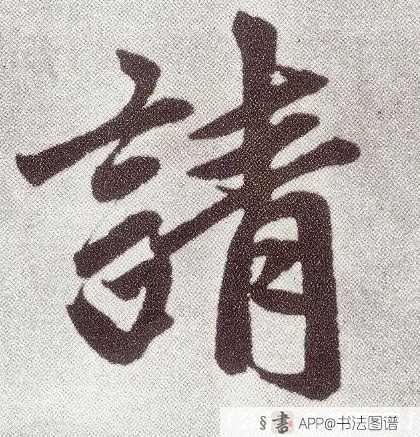 請
§ 書 APP@书法图谱